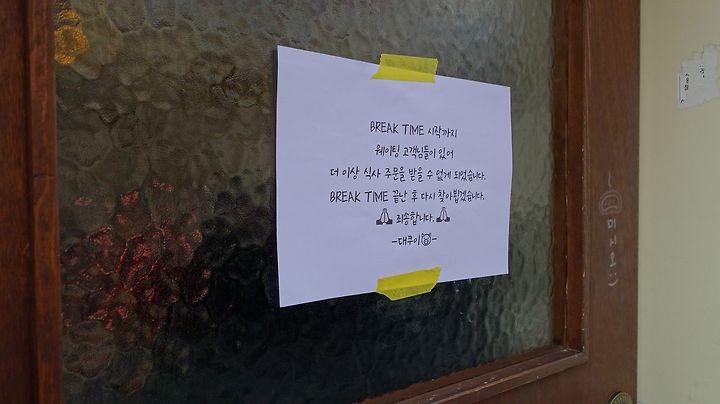 BREAK TIME 시작까지
웨이팅 고객님들이 있어
더 이상 식사 주문을 받을 수 없게 되었습니다.
BREAK TIME 끝난 후 다시 찾아뵙겠습니다.
🙏 죄송합니다. 🙏
-대쿠이🐻-